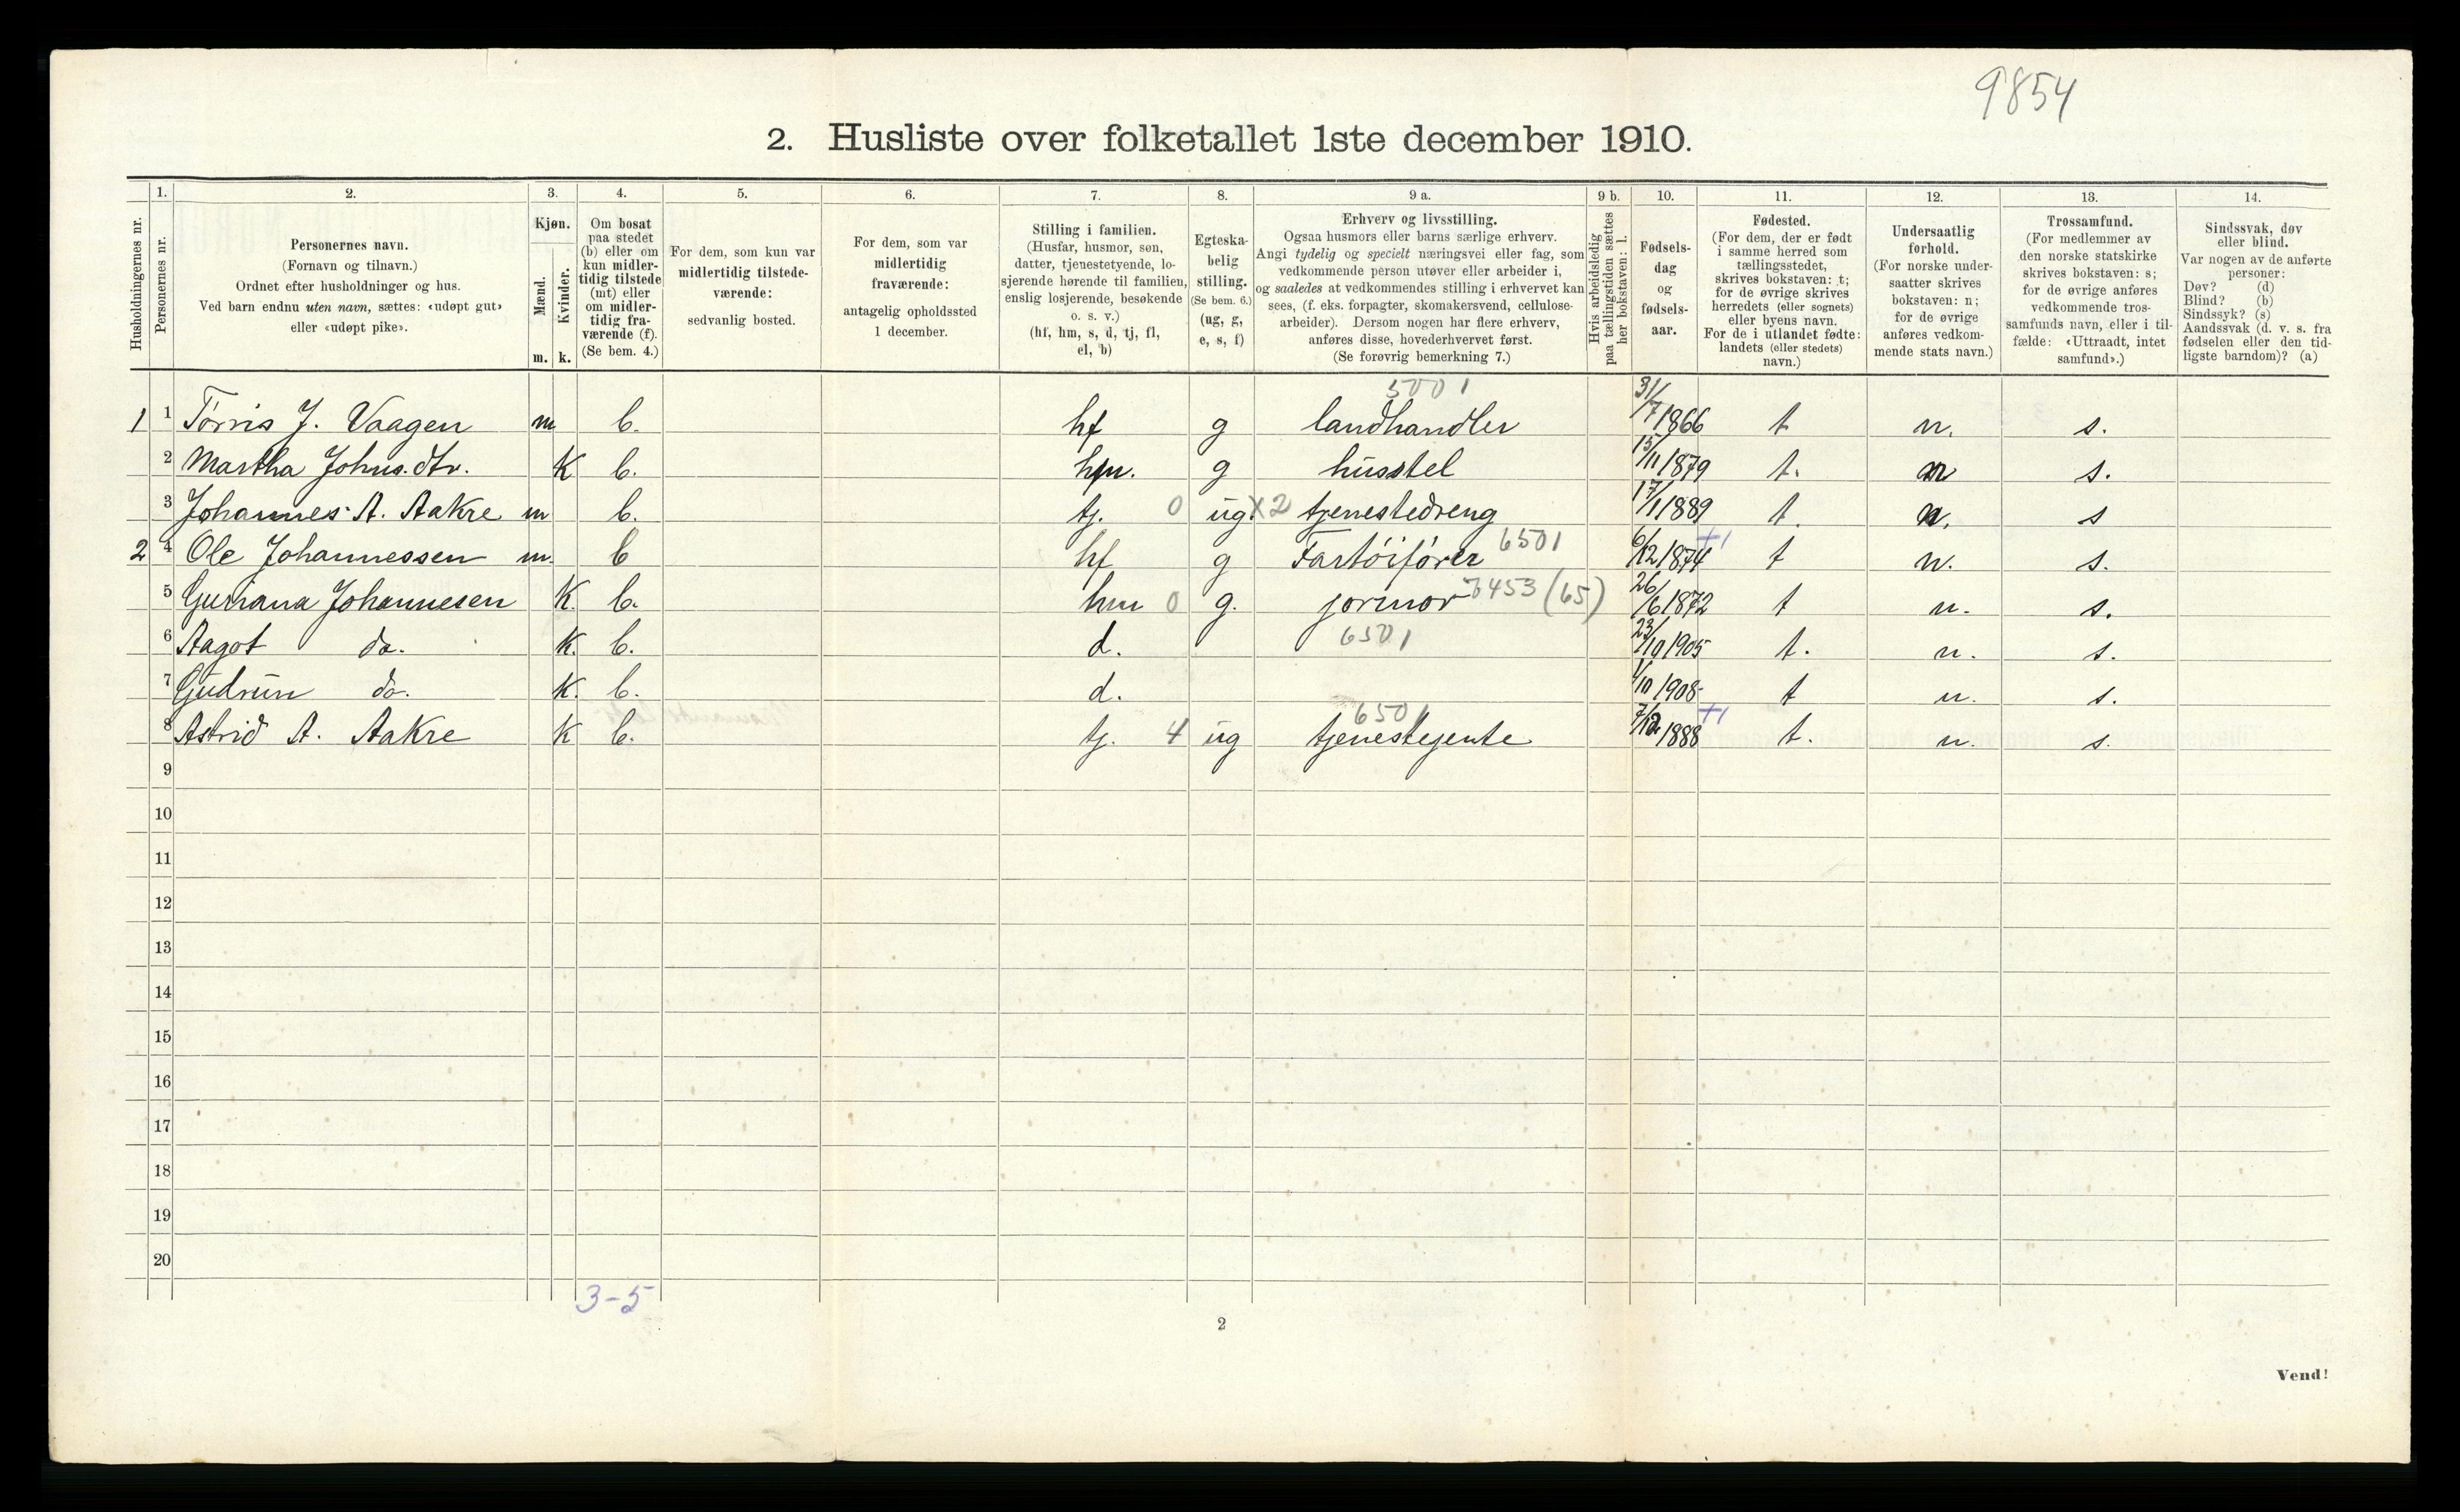 9854
2. Husliste over folketallet 1ste december 1910.
Husholdningernes nr.
1.
Personernes nr.
2.
Personernes navn.
(Fornavn og tilnavn.)
Ordnet efter husholdninger og hus.
Ved barn endnu uten navn, sættes: «udøpt gut»
eller «udøpt pike».
3.
Kjøn.
Mænd.
Kvinder.
m. k.
4.
Om bosat
paa stedet
(b) eller om
kun midler-
tidig tilstede
(mt) eller
om midler-
tidig fra-
værende (f).
(Se bem. 4.)
5.
For dem, som kun var
midlertidig tilstede-
værende:
sedvanlig bosted.
6.
For dem, som var
midlertidig
fraværende:
antagelig opholdssted
1 december.
7.
Stilling i familien.
(Husfar, husmor, søn,
datter, tjenestetyende, lo-
sjerende hørende til familien,
enslig losjerende, besøkende
o. s. v.)
(hf, hm, s, d, tj, fl,
el, b)
8.
Egteska-
belig
stilling.
(Se bem. 6.)
(ug, g,
e, s, f)
9 a.
Erhverv og livsstilling.
Ogsaa husmors eller barns særlige erhverv.
Angi tydelig og specielt næringsvei eller fag, som
vedkommende person utøver eller arbeider i,
og saaledes at vedkommendes stilling i erhvervet kan
sees, (f. eks. forpagter, skomakersvend, cellulose-
arbeider). Dersom nogen har flere erhverv,
anføres disse, hovederhvervet først.
(Se forøvrig bemerkning 7.)
9 b.
Hvis arbeidsledig
paa tællingstiden sættes
her bokstaven: l.
10.
Fødsels-
dag
og
fødsels-
aar.
11.
Fødested.
(For dem, der er født
i samme herred som
tællingsstedet,
skrives bokstaven: t;
for de øvrige skrives
herredets (eller sognets)
eller byens navn.
For de i utlandet fødte:
landets (eller stedets)
navn.)
12.
Undersaatlig
forhold.
(For norske under-
saatter skrives
bokstaven: n;
for de øvrige
anføres vedkom-
mende stats navn.)
13.
Trossamfund.
(For medlemmer av
den norske statskirke
skrives bokstaven: s;
for de øvrige anføres
vedkommende tros-
samfunds navn, eller i til-
fælde: «Uttraadt, intet
samfund».)
14.
Sindssvak, døv
eller blind.
Var nogen av de anførte
personer:
Døv? (d)
Blind? (b)
Sindssyk? (s)
Aandssvak (d. v. s. fra
fødselen eller den tid-
ligste barndom)? (a)
5001
1 1 Tørris J. Vaagen m b. hf g landhandler 31/7 1866 t n. s.
2 Martha Johns.dtr. K b. hm. g husstel 15/11 1879 t. n s.
3 Johannes A. Aakre m b. tj. 0 ug X2 tjenestedreng 17/1 1889 t. n. s
2 4 Ole Johannessen m. b hf g Fartöiförer 6501 6/12 1874 +1 t n. s.
5 Guriana Johannesen K. b. hm 0 g. jormor 7453 (65) 26/6 1872 t n. s.
6 Aagot do. K. b. d. 6501 23/10 1905 t. n. s.
7 Gudrun do. K. b. d. 1/10 1908 t n. s.
6501
8 Astrid A. Aakre K b. tj. 4 ug tjenestejente 7/12 1888 +1 t. n. s.
9
10
11
12
13
14
15
16
17
18
19
20
3-5
2
Vend!